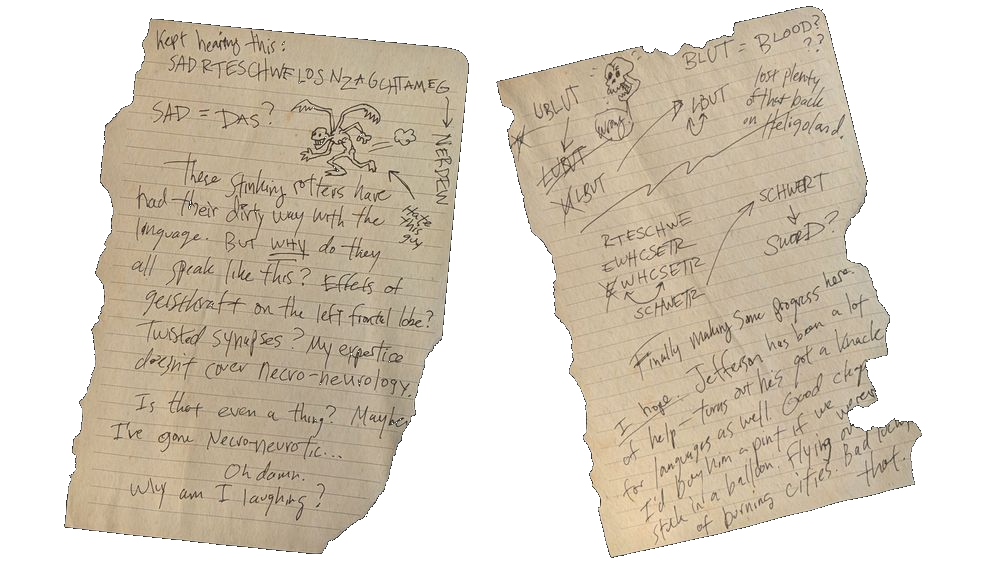 Kept hearing this:
SADRTESCHWELOSNZAGCHTAMEG
NERDEW
SAD = DAS?
Hate
this
guy
These stinking rotters have
had their dirty way with the
language. But WHY do they
all speak like this? Effets of
geistkraft on the left frontal lobe?
Twisted synapses? My expertise
doesn't cover necro-neurology.
Is that even a thing? Maybe
I've gone Necro-neurotic...
Oh damn.
Why am I laughing?
BLUT = BLOOD?
??
UBLUT
LUBUT
wrong
XLBUT
LBUT
lost plenty
of that back
on Heligoland.
RTESCHWE
EWHCSETR
EWHCSETR
SCHWETR
SCHWERT
SWORD?
Finally making some progress here
I hope. Jefferson has been a lot
of help - turns out he's got a knack
for languages as well. Good chap.
I'd buy him a pint if we weren't
stuck in a balloon. Flying over
of burning cities. Bad luck,
that.